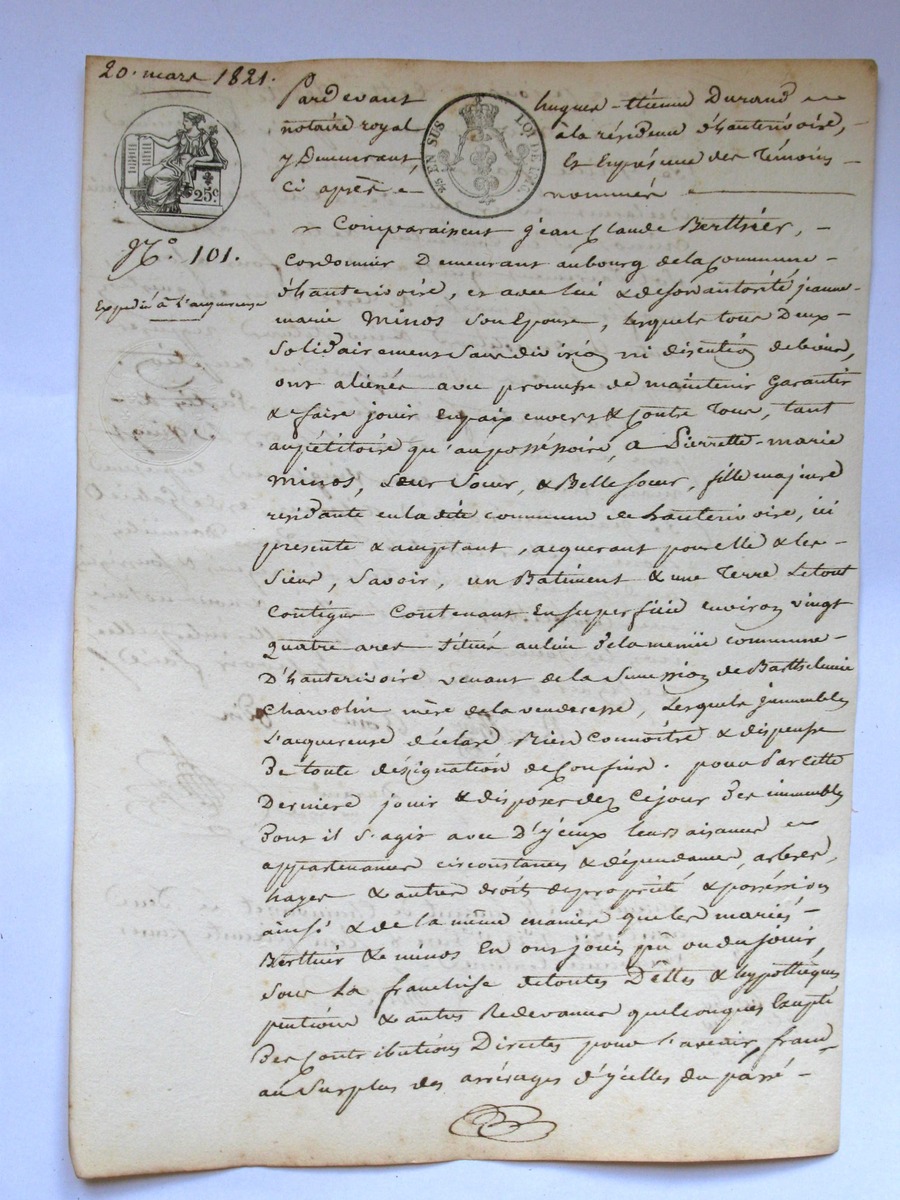 20. mars 1821.
Pardevant hugues-étienne Durand
notaire royal à la résidence d'hauterivoire,
y Demeurant, Et En présence des Témoins
ci après nommés
25c.
EN SUS
LOI DE
N.o 101.
Expédié à l'acquereuse
Comparaissent jean Claude Berthier,
Cordonnier Demeurant au bourg de la Commune
d'hauterivoire, et avec lui & de son autorité jeanne
marie Minos son Epouse, lesquels tous Deux
solidairement sans division ni discution de biens,
ont aliéné avec promesse de maintenir Garantir
& faire jouir en paix envers & contre Tous, tant
au pétitoire qu'au possessoire, a Pierrette-marie
Minos, Leur Sœur, & Belle Sœur, fille majeure
residante en la dite commune de hauterivoire, ici
presente & acceptant, acquerant pour elle & les
Siens, Savoir, un Batiment & une Terre Le tout
Contigu Contenant En superficie environ vingt
quatre ares Situés au lieu De la même commune
D'hauterivoire venant de la Succession de Barthelemie
Charvolin mère de la venderesse, Lesquels immeubles
L'acquereuse déclare Bien Connoitre & dispense
De toute désignation de Confins. pour Par cette
Derniere jouir & disposer dez Ce jour Des immeubles
Dont il s'agit avec D'yceux leurs aisances
appartenances circonstances & dépendances, arbres,
hayes & autres droits de propriété & possession
ainsi & de la même maniere que les mariés
Berthier & Minos En ont joui pu ou du jouir,
sous La franchise de toutes Dêttes & hypothèques
pentions & autres Redevances quelconques Excepté
Des Contributions Directes pour l'avenir, franc
au Surplus des arrérages d'ycelles du passé